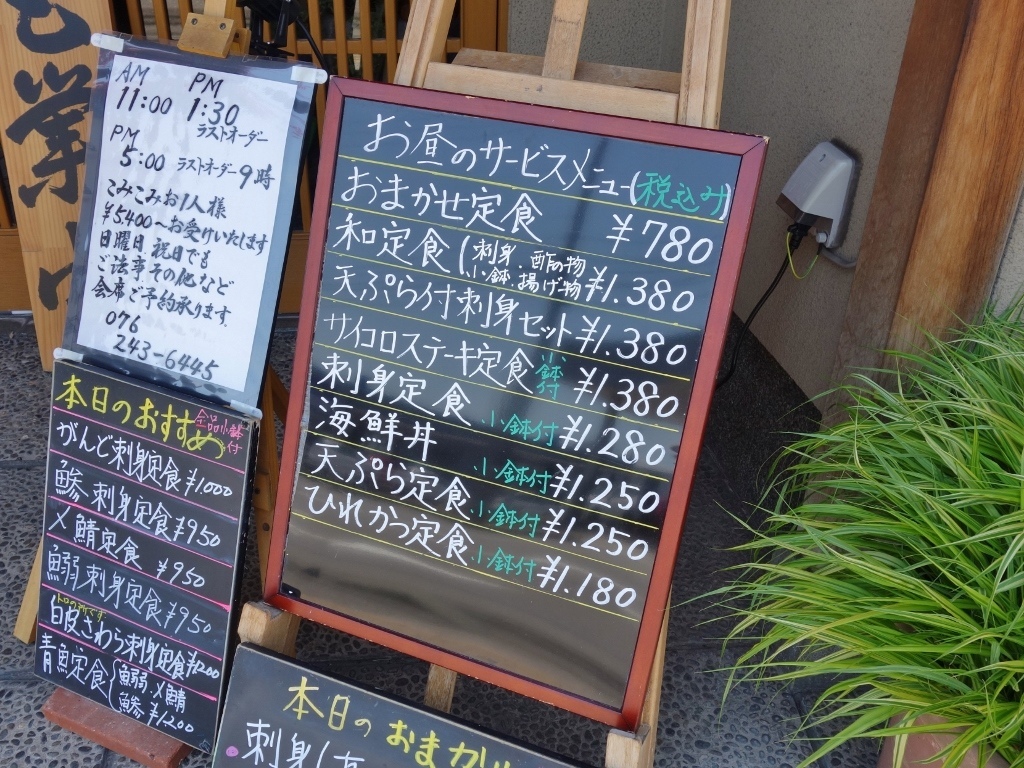 AM PM
11:00 1:30
ラストオーダー
PM
5:00 ラストオーダー9時
こみこみお1人様
¥5400〜お受けいたします
日曜日、祝日でも
ご法事その他など
会席ご予約承ります.
076
243-6445
お昼のサービスメニュー(税込み)
おまかせ定食 ¥780
和定食(刺身、酢の物
小鉢、揚げ物 ¥1.380
天ぷら付刺身セット ¥1.380
サイコロステーキ定食 小鉢付 ¥1.380
刺身定食 小鉢付 ¥1.280
海鮮丼 小鉢付 ¥1.250
天ぷら定食 小鉢付 ¥1.250
ひれかつ定食 小鉢付 ¥1.180
本日のおすすめ 全品小鉢付
がんど刺身定食 ¥1.000
鯵刺身定食 ¥950
〆鯖定食 ¥950
鰯刺身定食 ¥950
目皮さわら刺身定食 ¥1200
青魚定食(鰯、〆鯖
鯵 ¥1200
本日のおまか
刺身(